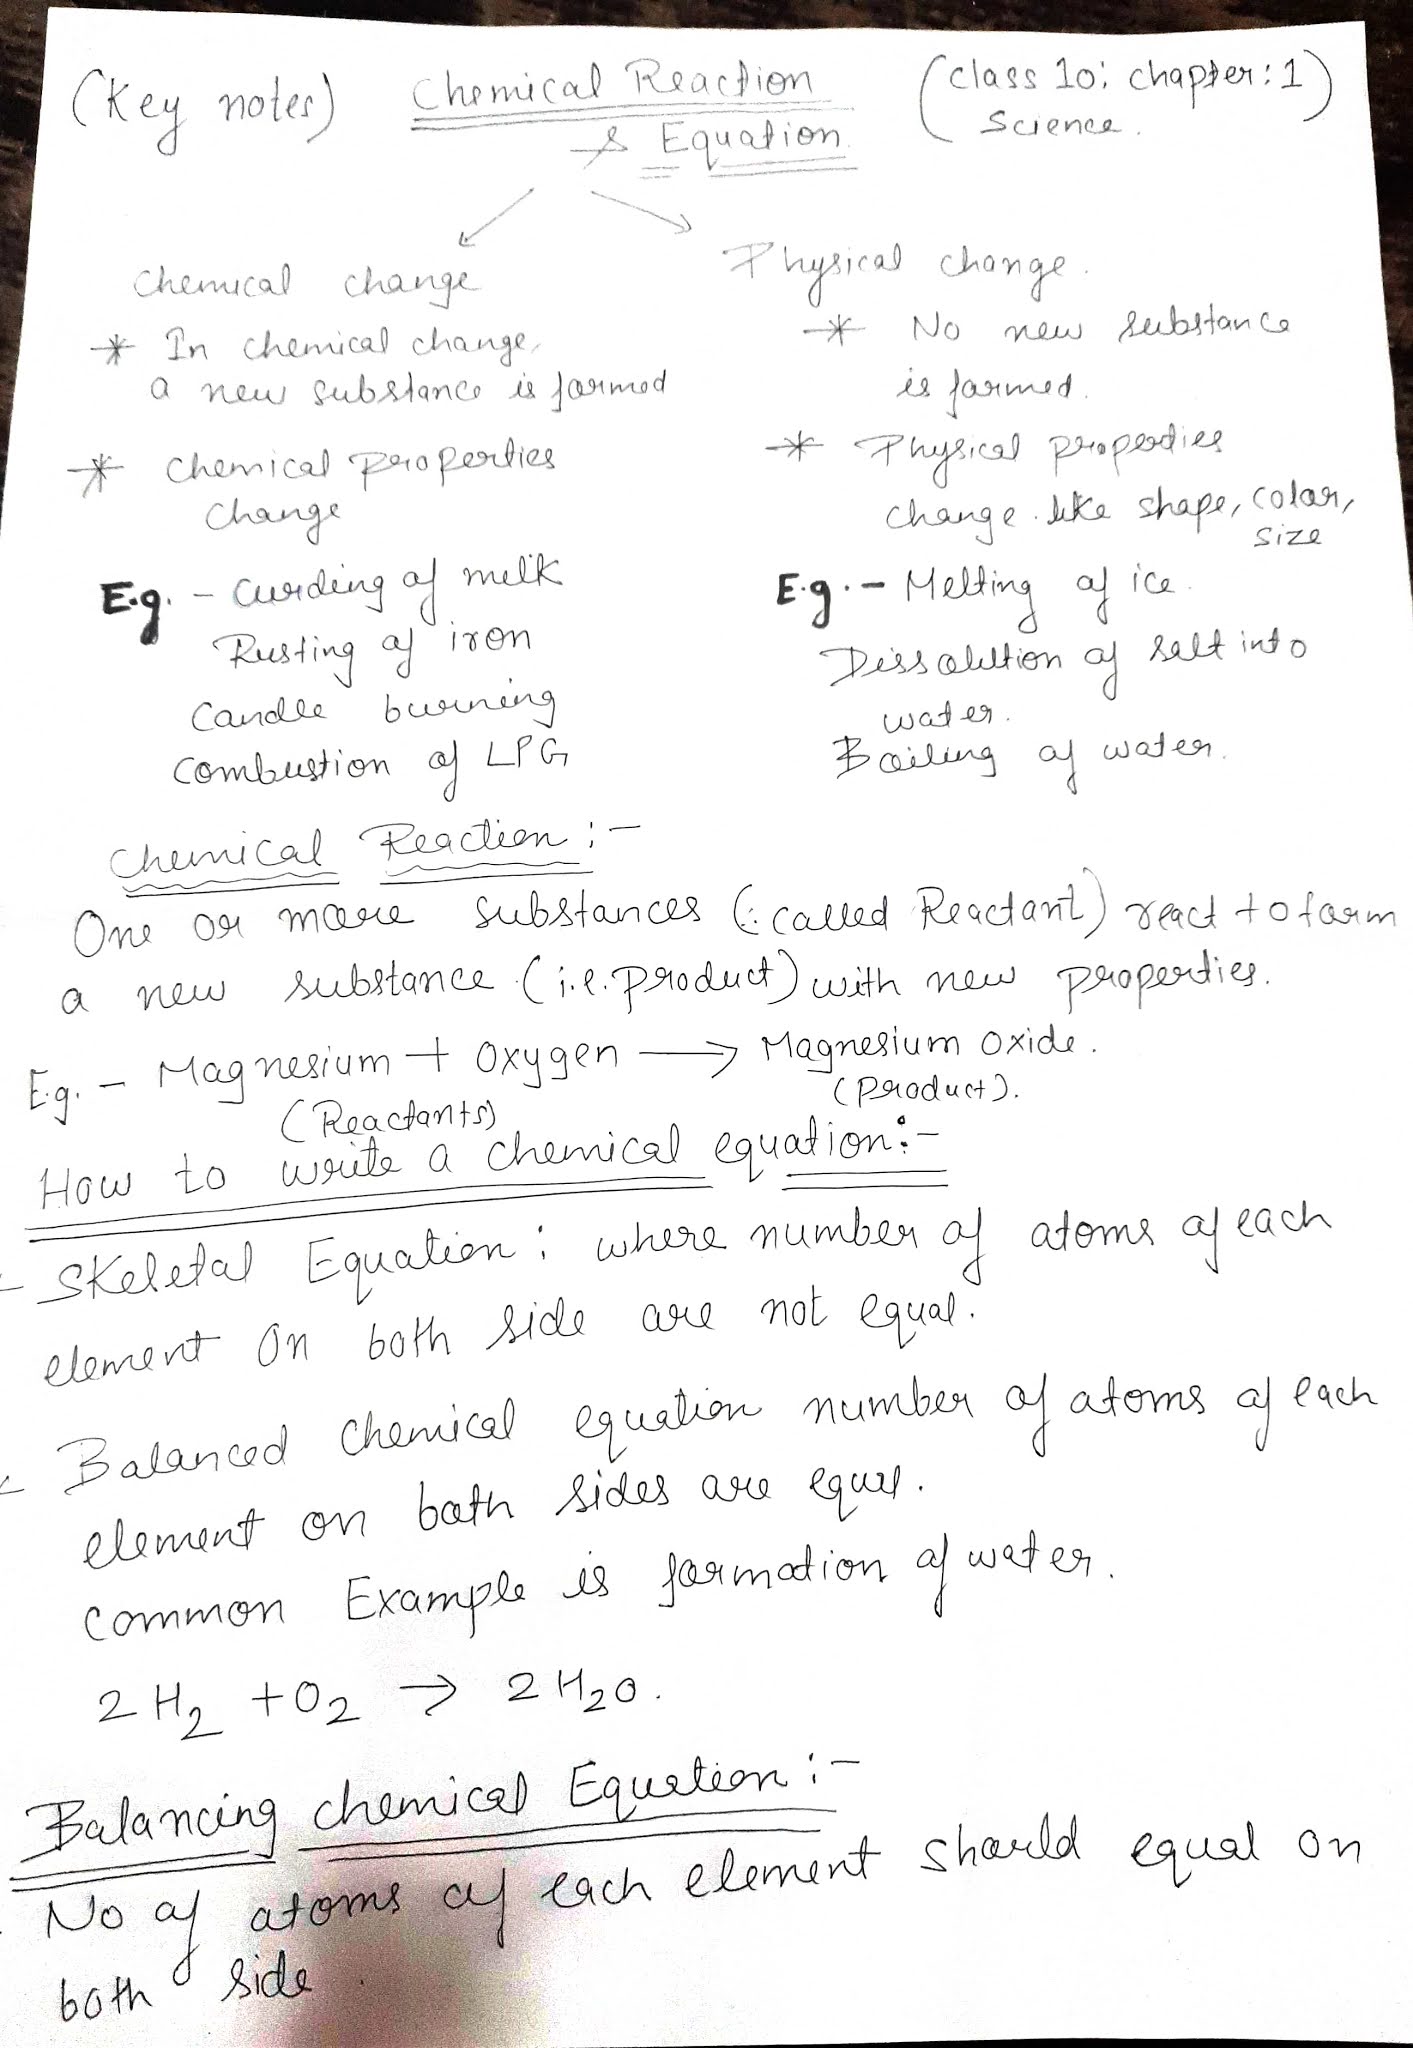 (Key notes) Chemical Reaction (Class 10: chapter: 1)
& Equation Science.
Chemical change
* In chemical change,
a new substance is formed
* Chemical properties
change
E.g. - Curding of milk
Rusting of iron
Candle burning
Combustion of LPG
Physical change.
* No new substance
is formed.
* Physical properties
change. like shape, color,
size
E.g. - Melting of ice.
Dissolution of salt into
water.
Boiling of water.
Chemical Reaction :-
One or more substances (: called Reactant) react to form
a new substance (i.e. product) with new properties.
E.g. - Magnesium + Oxygen → Magnesium Oxide.
(Reactants) (Product).
How to write a chemical equation :-
- Skeletal Equation : where number of atoms of each
element On both side are not equal.
Balanced Chemical equation number of atoms of each
element on both sides are equal.
Common Example is formation of water.
2H₂ + O₂ → 2H₂O.
Balancing chemical Equation :-
No of atoms of each element should equal on
both side.